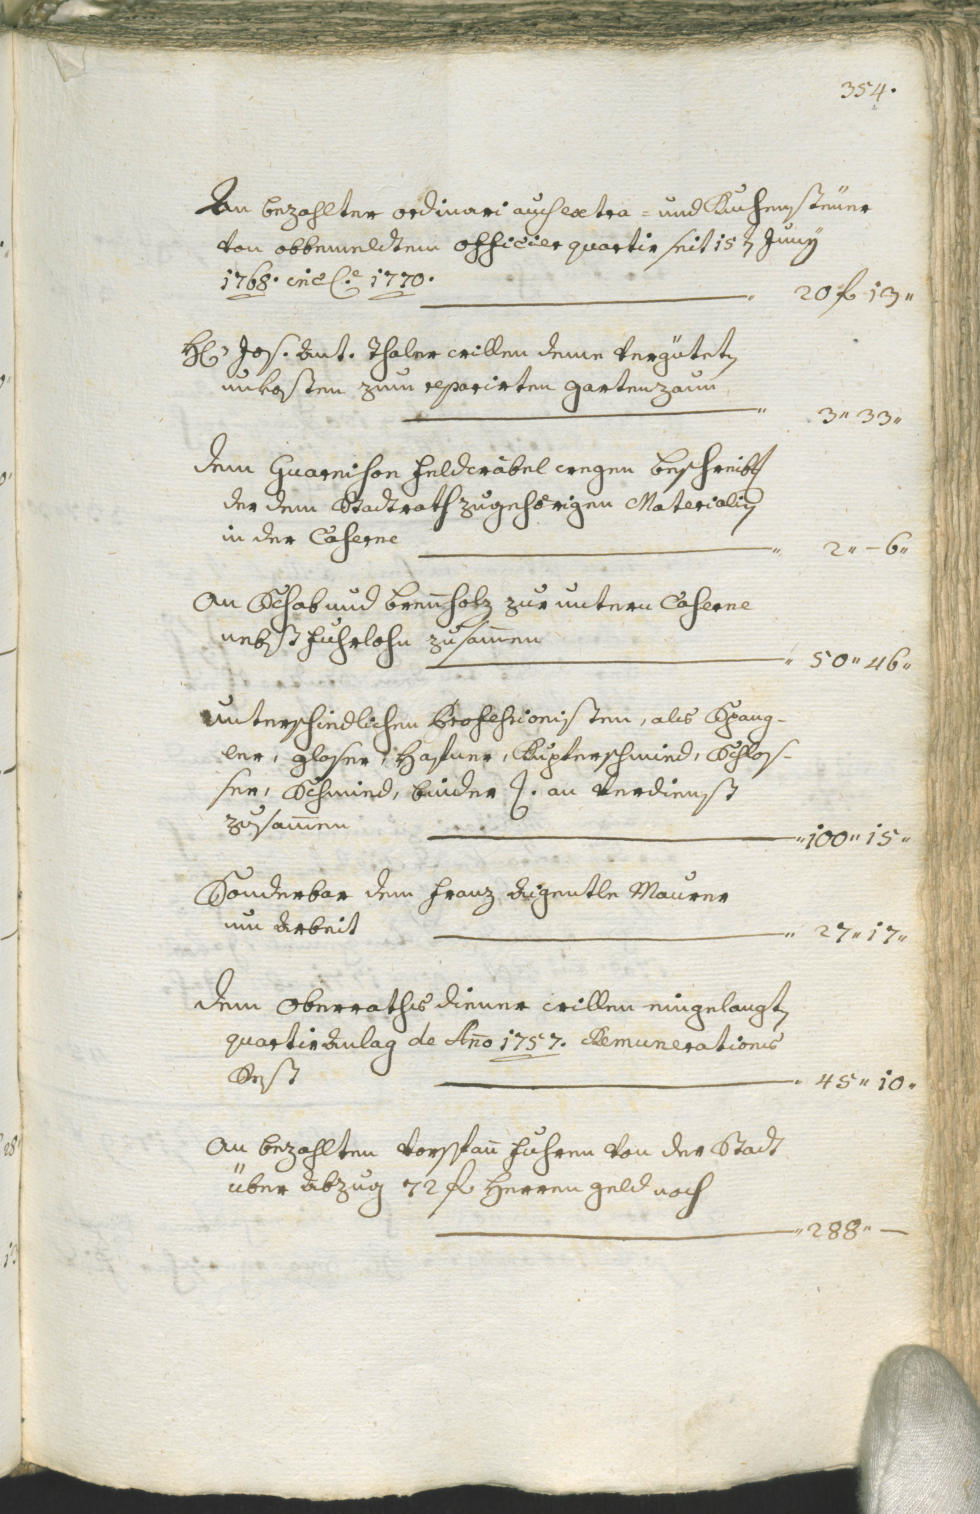 354.
An bezahlter ordinari auch extra- und Kuchensteüer
von obbemeldtem officier quartir seit 15t Juny
1768. incl.e 1770. 20 f 13"
H: Jos. Ant. Thaler willen deme vergütetn
unkosten zum reparirten gartenzaun 3" 33"
dem Guarnison feldwäbel wegen beschreib
der dem Stadtrath zugehörigen Materialien
in der Caserne 2"-6"
An Schab und brennholz zur untern Caserne
nebst fuhrlohn zusam̄en 50" 46"
unterschiedlichen Professionisten, als Spang-
ler, glaser, Hafner, Kupferschmied, Schlos-
ser, Schmied, binder . an verdienst
zusam̄en "100" 15"
Sonderbar dem franz Aigentle Maurer
um Arbeit 27" 17"
dem Oberraths diener willen eingelangtn
quartir Anlag de Año 1757. Remunerations
Rest 45" 10"
An bezahlten vorspan̄ fuhren von der Stadt
über abzug 72 f Herren geld noch
"288"-